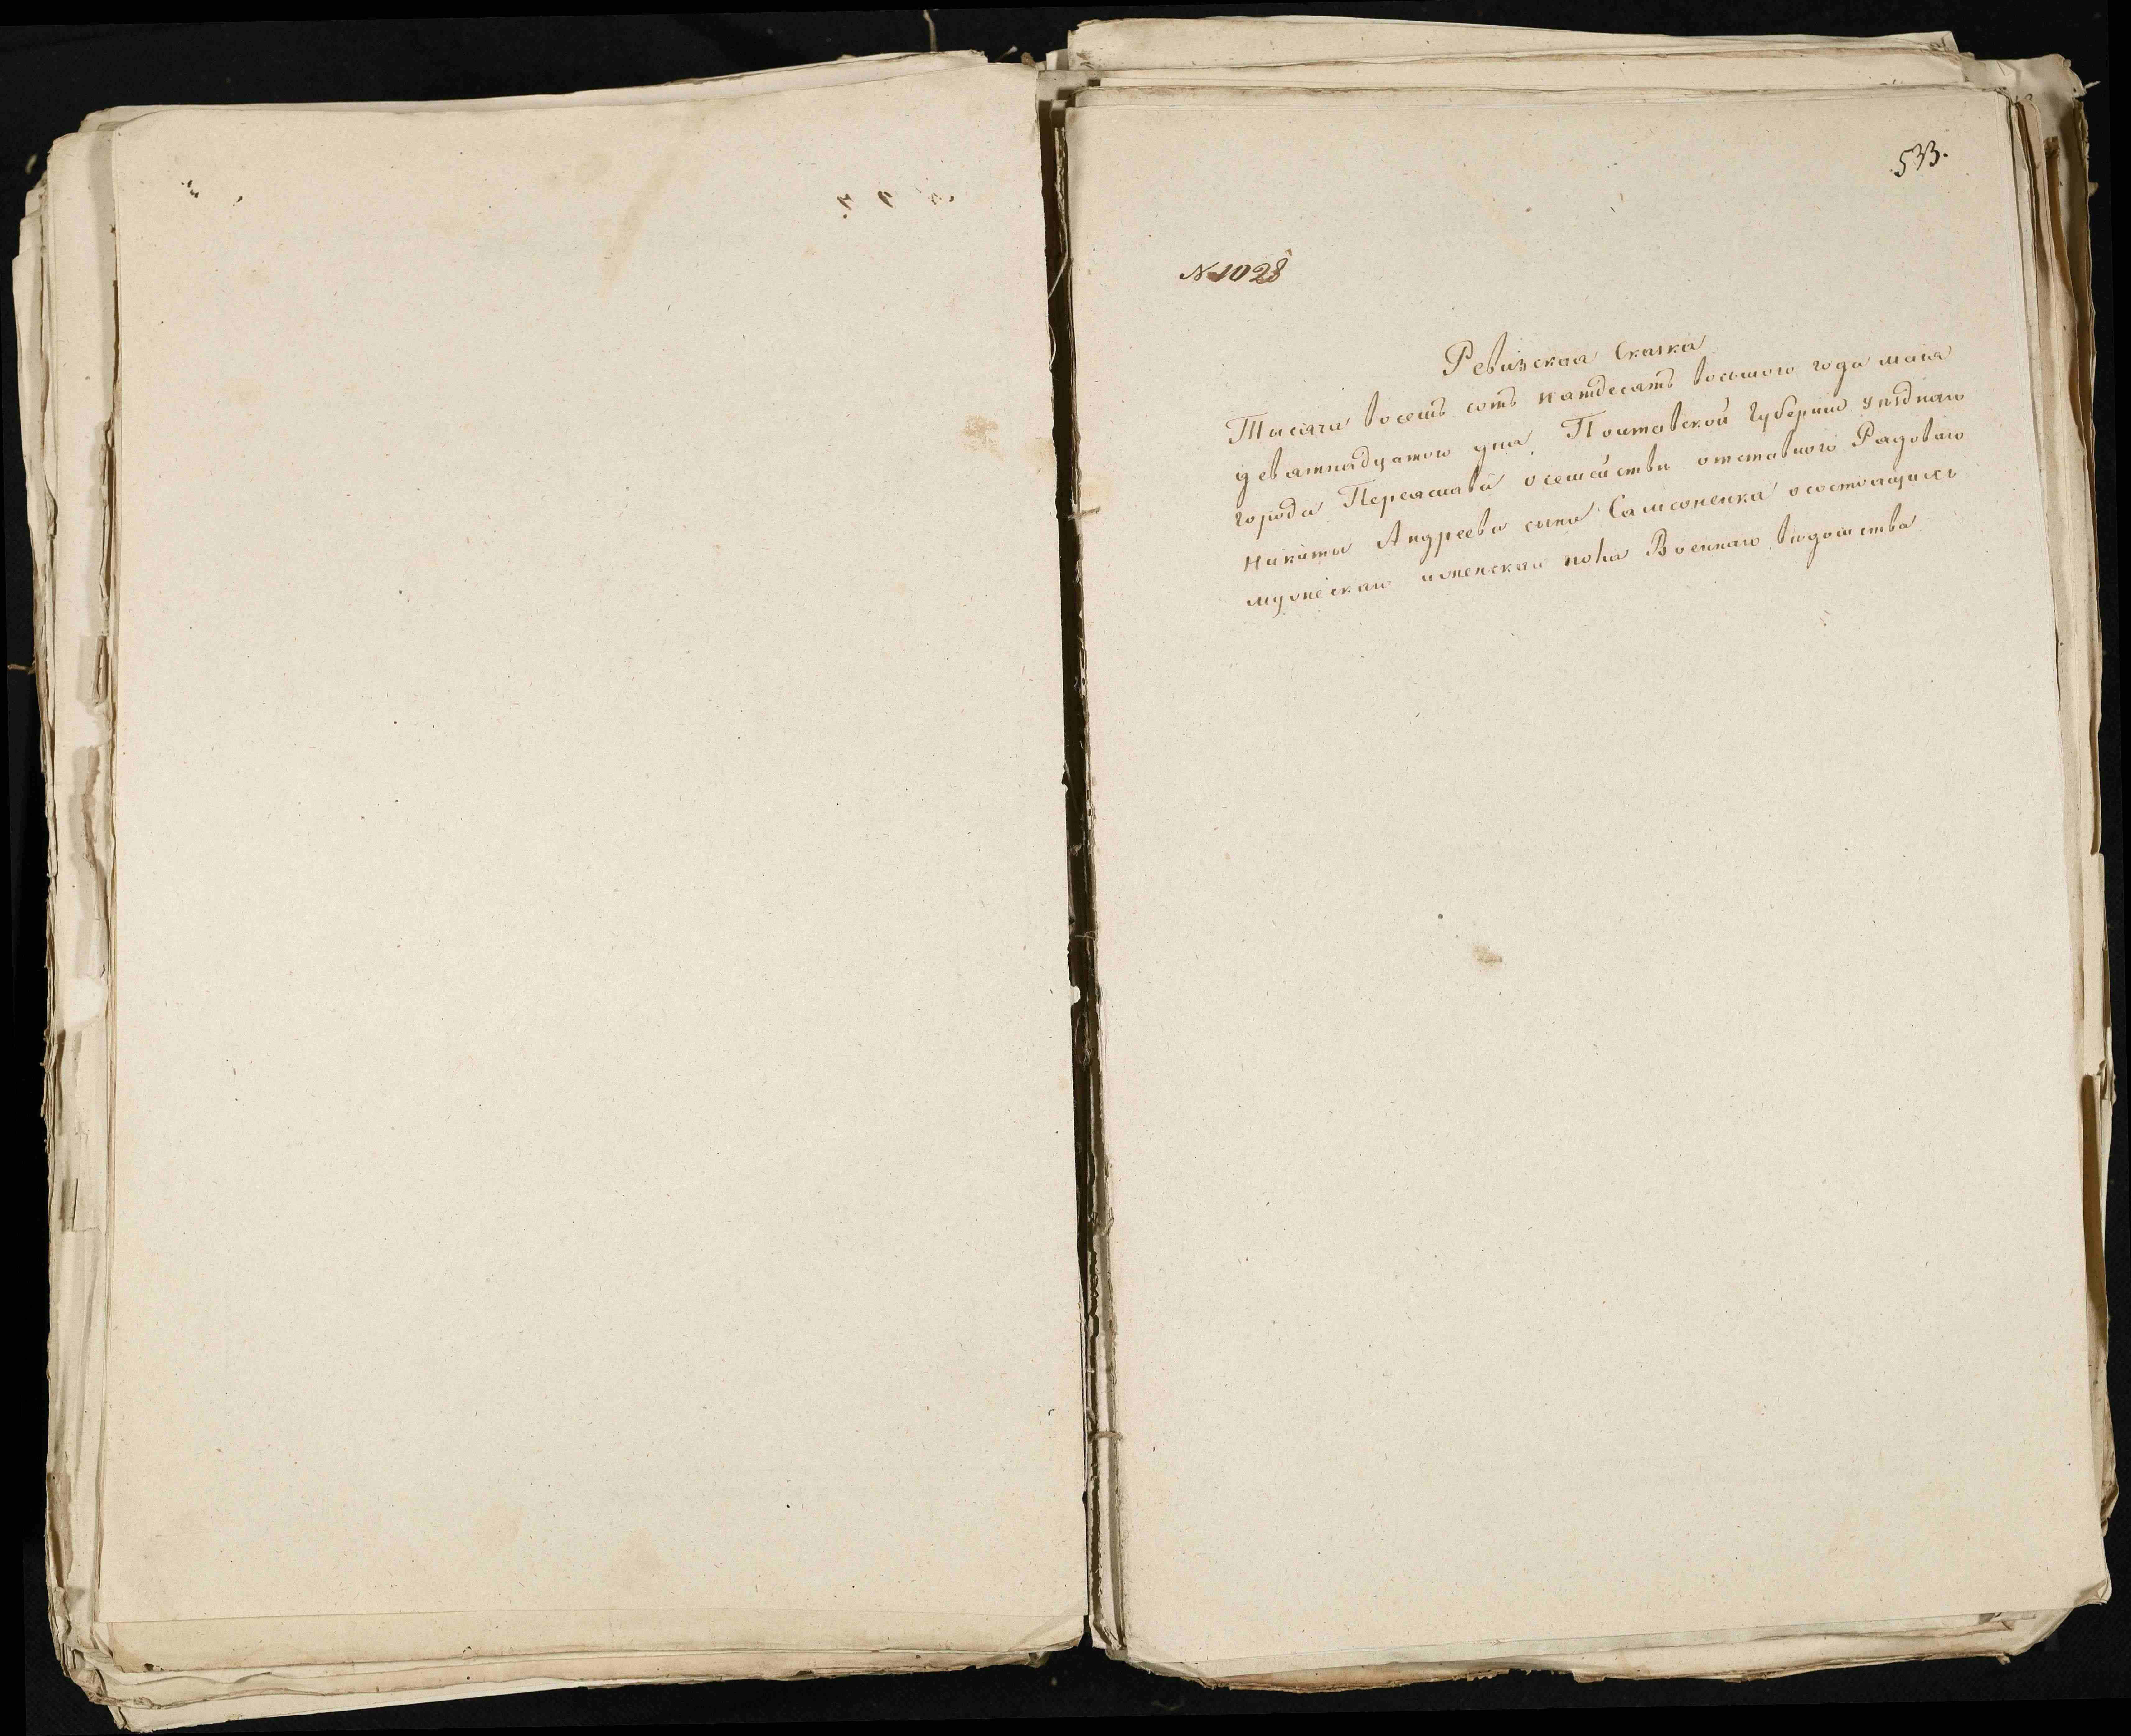 533.
N 1028
Ревизская Сказка
Тысяча восемъ сотъ пятдесятъ восьмого года маия
девятнадцатого дня, Полтавской Губернии уезднаго
города Переяслава о семействе отставного Рядоваго
Никиты Андреева сына Самсоненка о состоящихъ
мужескаго и женскаго пола Военнаго ведомства